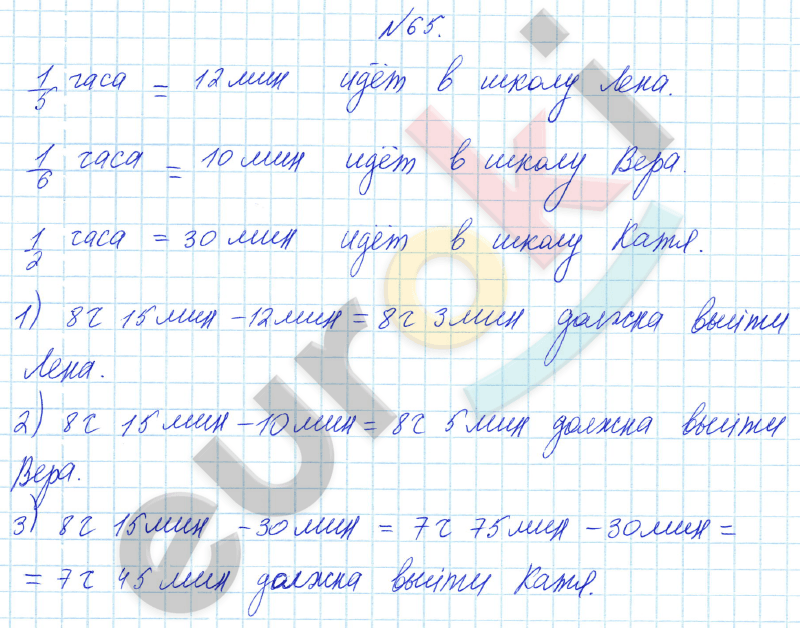 №65.
1/5 часа = 12 мин идёт в школу Лена.
1/6 часа = 10 мин идёт в школу Вера.
1/2 часа = 30 мин идёт в школу Катя.
1) 8ч 15мин - 12мин = 8ч 3мин должна выйти
Лена.
2) 8ч 15мин - 10мин = 8ч 5мин должна выйти
Вера.
3) 8ч 15мин - 30мин = 7ч 75мин - 30мин =
= 7ч 45мин должна выйти Катя.
euroki